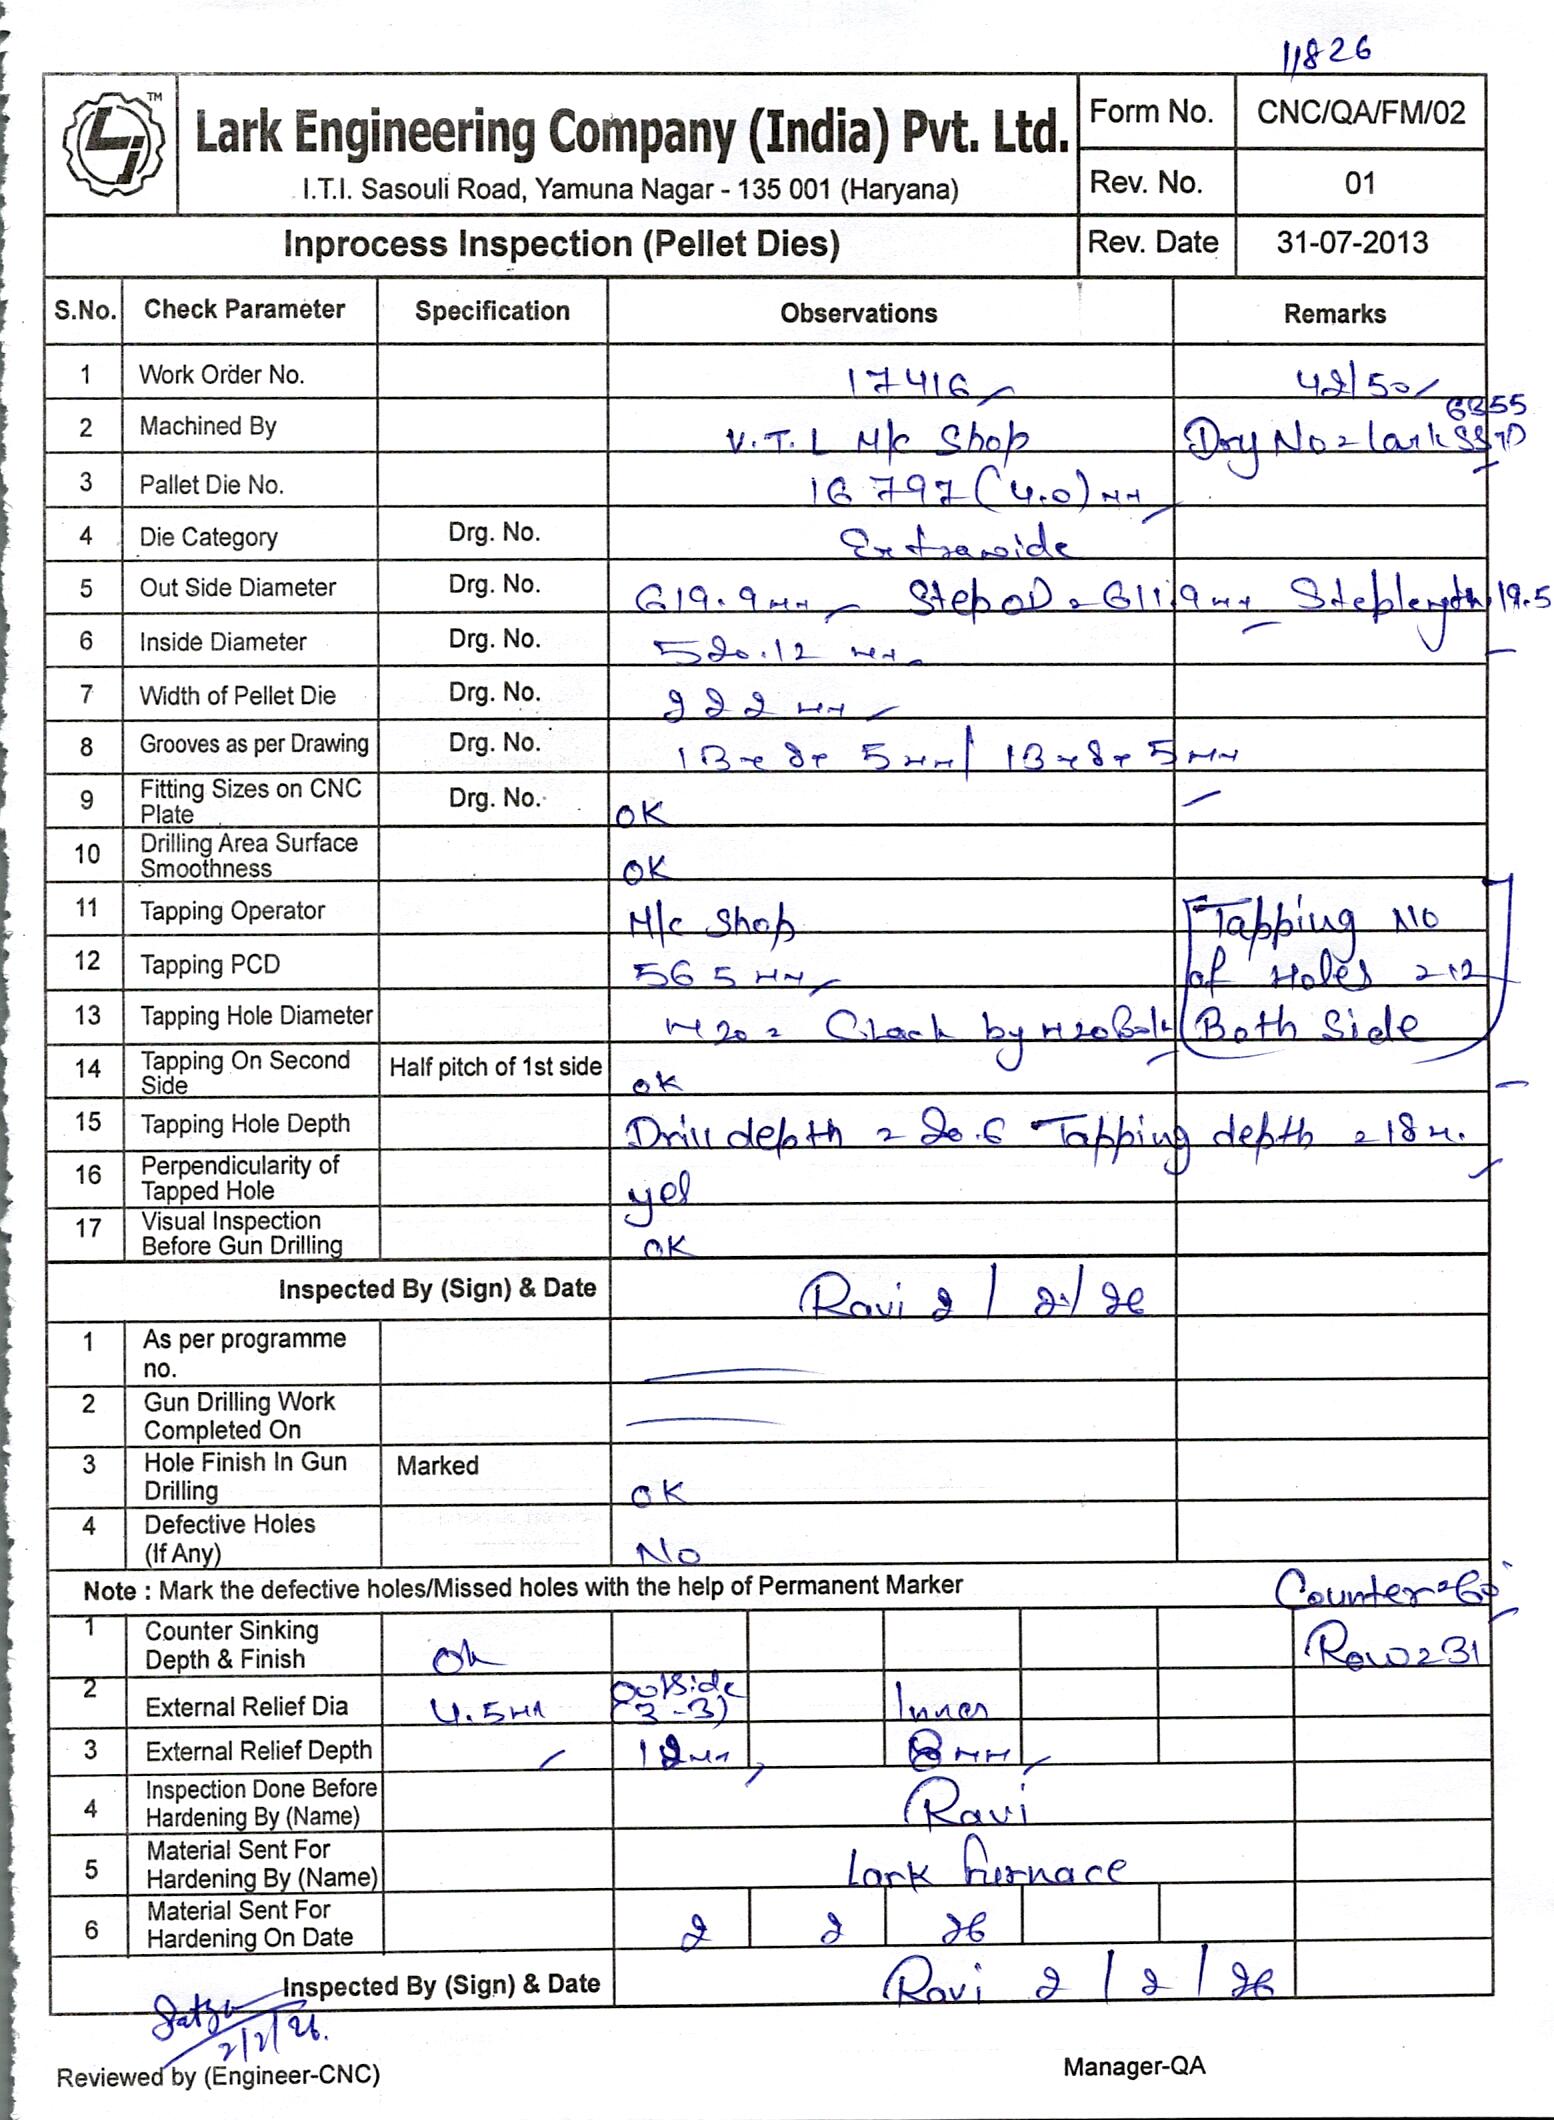 11826
TM
Lark Engineering Company (India) Pvt. Ltd.
I.T.I. Sasouli Road, Yamuna Nagar - 135 001 (Haryana)
Form No. CNC/QA/FM/02
Rev. No. 01
Inprocess Inspection (Pellet Dies) Rev. Date 31-07-2013
S.No. Check Parameter Specification Observations Remarks
1 Work Order No. 17416 42/50
2 Machined By V.T.L M/c Shop Drg No = Lark
3 Pallet Die No. 16797 (4.0) mm
4 Die Category Drg. No. Extrawide
5 Out Side Diameter Drg. No. 619.9 mm Step OD = 611.9 mm Step length 19.5
6 Inside Diameter Drg. No. 520.12 mm
7 Width of Pellet Die Drg. No. 222 mm
8 Grooves as per Drawing Drg. No. 13 x 8 x 5 mm / 13 x 8 x 5 mm
9 Fitting Sizes on CNC Plate Drg. No. OK
10 Drilling Area Surface Smoothness OK
11 Tapping Operator M/c Shop Tapping No
12 Tapping PCD 565 mm of Holes = 12
13 Tapping Hole Diameter M20 = Chack by M20 Bolt Both Side
14 Tapping On Second Side Half pitch of 1st side ok
15 Tapping Hole Depth Drill depth = 20.6 Tapping depth = 18 m.
16 Perpendicularity of Tapped Hole yes
17 Visual Inspection Before Gun Drilling OK
Inspected By (Sign) & Date Ravi 2/2/26
1 As per programme no.
2 Gun Drilling Work Completed On
3 Hole Finish In Gun Drilling Marked OK
4 Defective Holes (If Any) No
Note : Mark the defective holes/Missed holes with the help of Permanent Marker Counter = 60°
1 Counter Sinking Depth & Finish Ok Row = 31
2 External Relief Dia 4.5 mm Outside (3-3) Inner
3 External Relief Depth 12 mm 8 mm
4 Inspection Done Before Hardening By (Name) Ravi
5 Material Sent For Hardening By (Name) Lark furnace
6 Material Sent For Hardening On Date 2 2 26
Inspected By (Sign) & Date Ravi 2/2/26
2/2/26.
Reviewed by (Engineer-CNC) Manager-QA